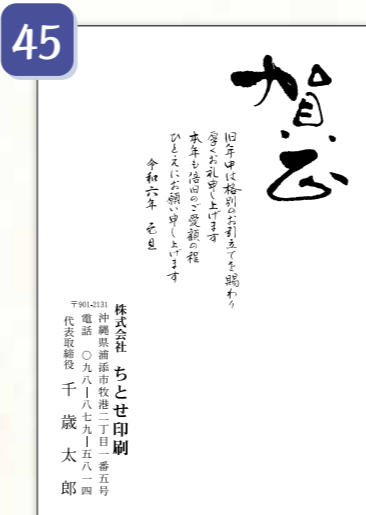 45
賀正
旧年中は格別のお引立てを賜わり
厚くお礼申し上げます
本年も倍旧のご愛顧の程
ひとえにお願い申し上げます
令和六年 元旦
株式会社 ちとせ印刷
〒901-2131
沖縄県浦添市牧港二丁目一番五号
電話 〇九八ー八七九ー五八一四
代表取締役 千歳太郎